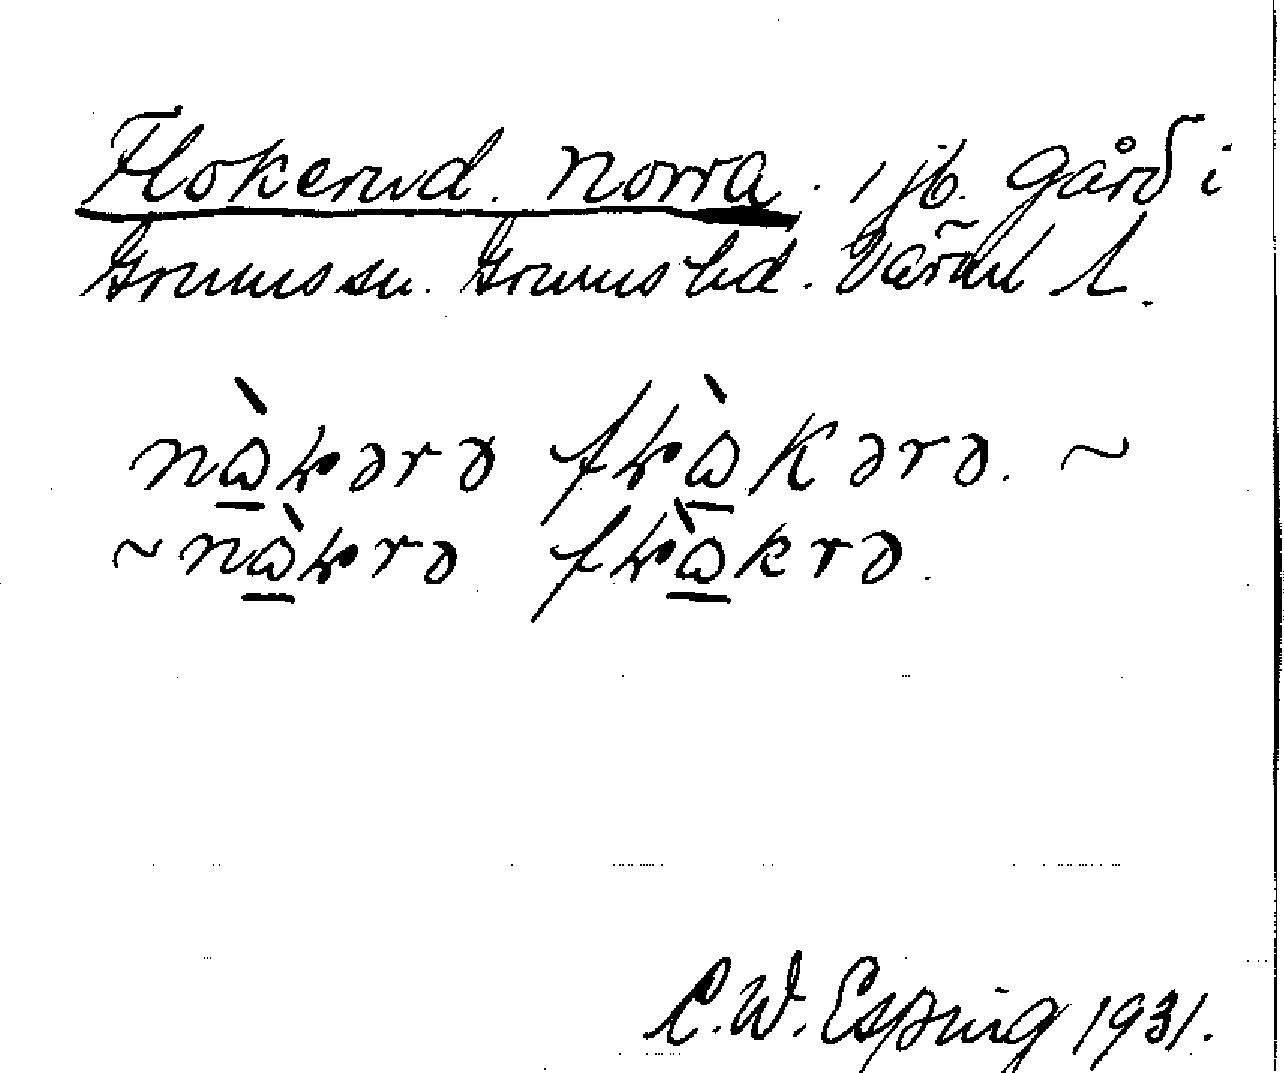 Flokerud. Norra. i jb. gård i
Grums sn. Grums hd. Värml l.
nὰ̱ꞎərə fꞎὰ̱kərə. ~
~ nὰ̱ꞎrə fꞎὰ̱krə.
C. W. Esping 1931.